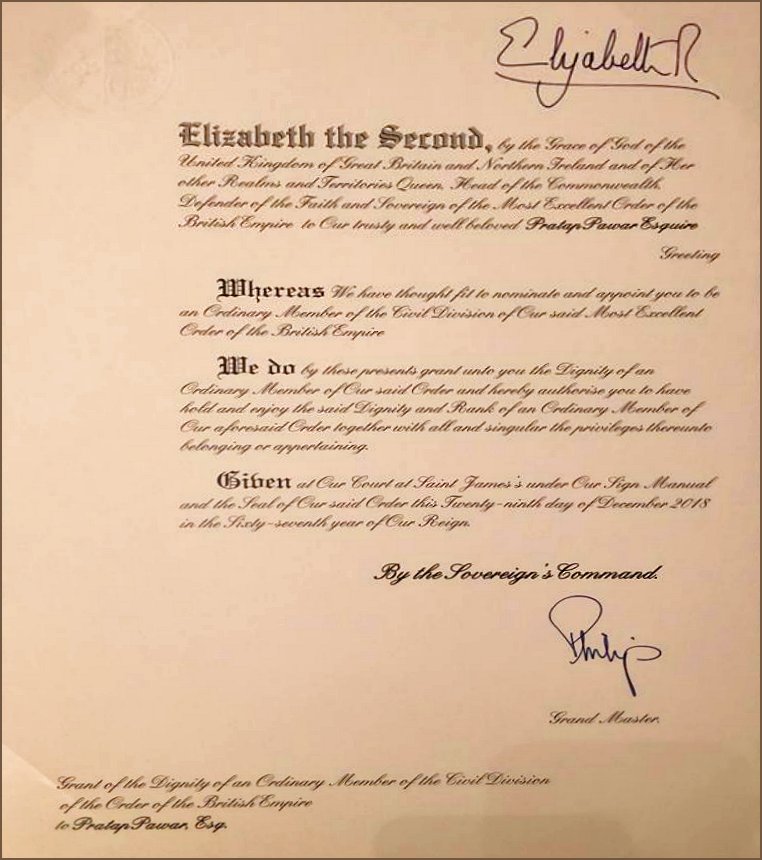 Elizabeth R
Elizabeth the Second, by the Grace of God of the
United Kingdom of Great Britain and Northern Ireland and of Her
other Realms and Territories Queen, Head of the Commonwealth,
Defender of the Faith and Sovereign of the Most Excellent Order of the
British Empire to Our trusty and well beloved Pratap Pawar Esquire
Greeting
Whereas We have thought fit to nominate and appoint you to be
an Ordinary Member of the Civil Division of Our said Most Excellent
Order of the British Empire
We do by these presents grant unto you the Dignity of an
Ordinary Member of Our said Order and hereby authorise you to have
hold and enjoy the said Dignity and Rank of an Ordinary Member of
Our aforesaid Order together with all and singular the privileges thereunto
belonging or appertaining.
Given at Our Court at Saint James's under Our Sign Manual
and the Seal of Our said Order this Twenty-ninth day of December 2018
in the Sixty-seventh year of Our Reign.
By the Sovereign's Command.
Philip
Grand Master.
Grant of the Dignity of an Ordinary Member of the Civil Division
of the Order of the British Empire
to Pratap Pawar, Esq.